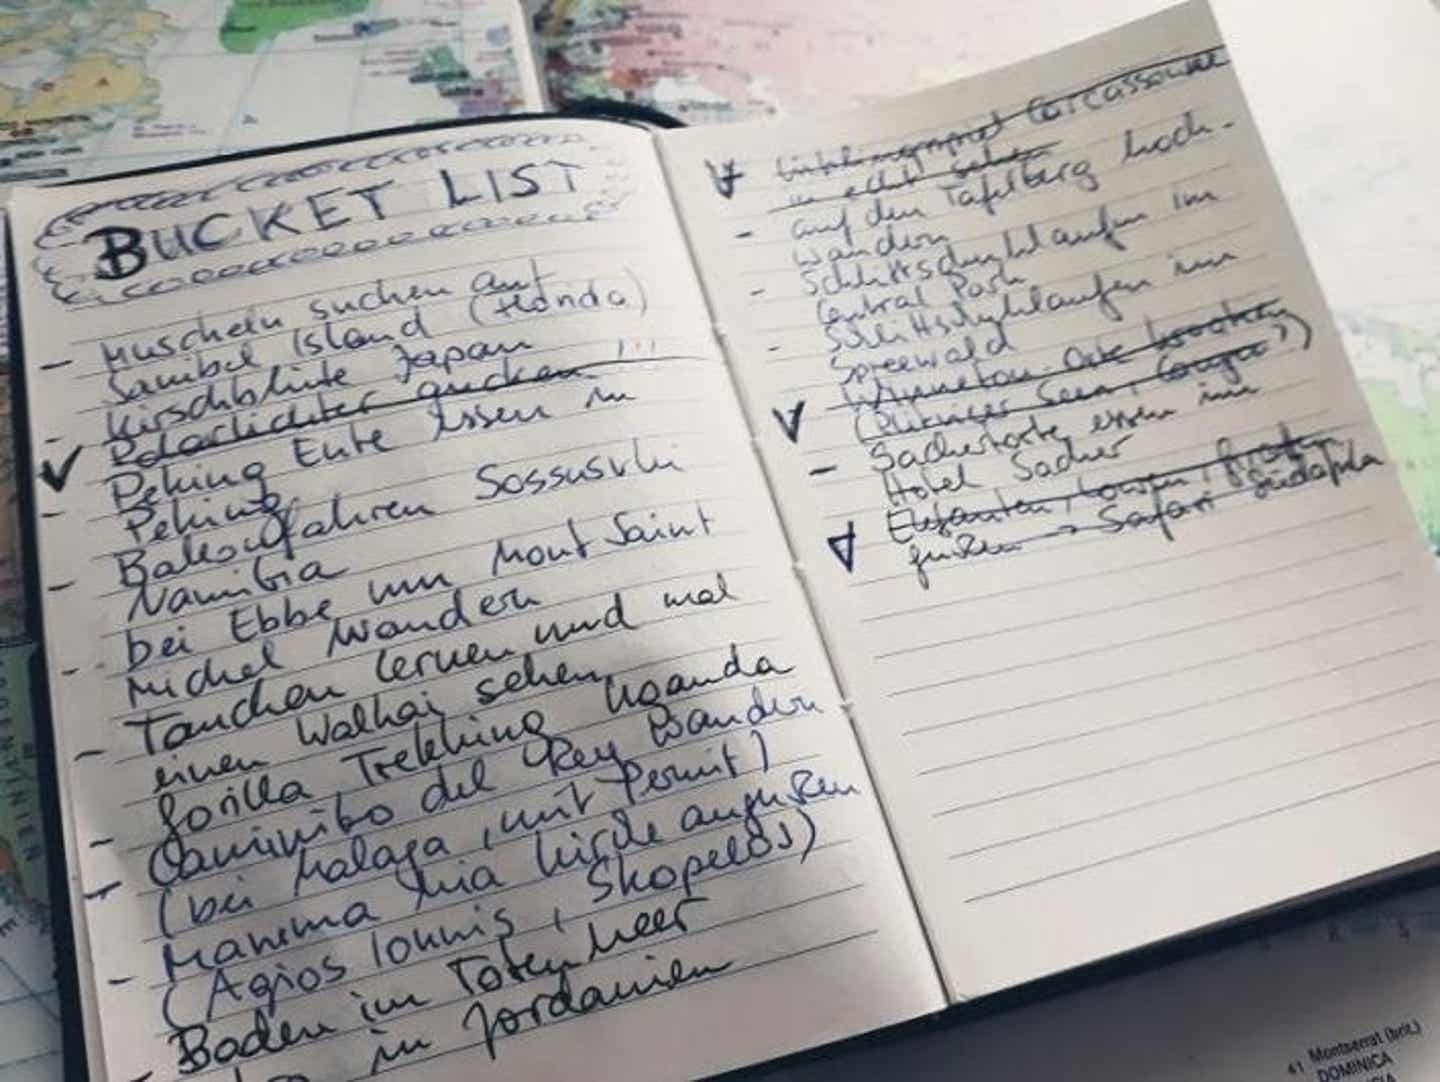 BUCKET LIST
- Muscheln suchen auf
Sanibel Island (Florida)
- Kirschblüte Japan
Polarlichter gucken !!!
- Peking Ente essen in
Peking
- Ballonfahren Sossusvlei
Namibia
- bei Ebbe um Mont Saint
Michel Wandern
- Tauchen lernen und mal
einen Walhai sehen
- Gorilla Trekking Uganda
- Caminito del Rey Wandern
(bei Malaga, mit Permit)
- Mamma Mia Kirche angucken
(Agios Ionnis, Skopelos)
- Baden im Toten Meer
in Jordanien
Carcassonne
in echt sehen
- auf den Tafelberg hoch-
wandern
- Schlittschuhlaufen im
Central Park
- Schlittschuhlaufen im
Spreewald
Winnetou-Orte
(Plitvicer Seen,
- Sachertorte essen im
Hotel Sacher
Elefanten, Löwen, Giraffen
gucken → Safari Südafrika
41 Montserrat (brit.)
DOMINICA